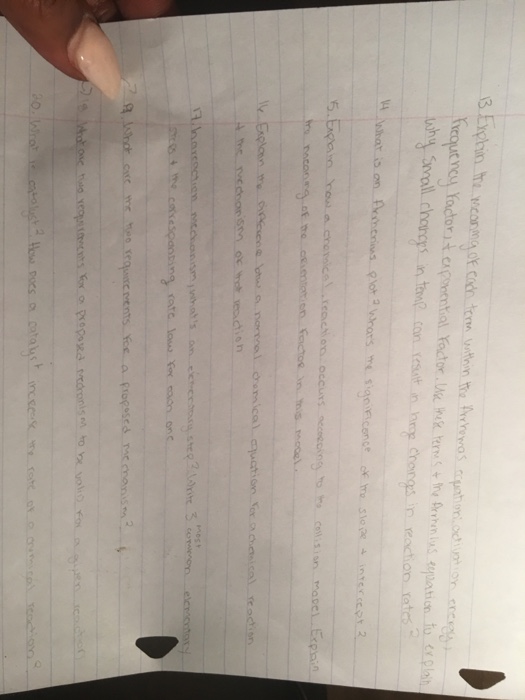 13. Explain the meaning of each term within the Arrhenius equation: activation energy,
frequency factor, + exponential factor. Use these terms + the Arrhenius equation to explain
why small changes in temp can result in large changes in reaction rates?
14 What is an Arrhenius plot? Whats the significance of the slope + intercept?
15. Explain how a chemical reaction occurs according to the collision model. Explain
the meaning of the orientation factor in this model.
16. Explain the difference b/w a normal chemical equation for a chemical reaction
+ the mechanism of that reaction
17. In a reaction mechanism, what's an elementary step? Write 3 most common elementary
steps + the corresponding rate law for each one
What are the two requirements for a proposed mechanism?
What are two requirements for a proposed mechanism to be valid for a given reaction
20. What is catalyst? How does a catalyst increase the rate of a chemical reaction?